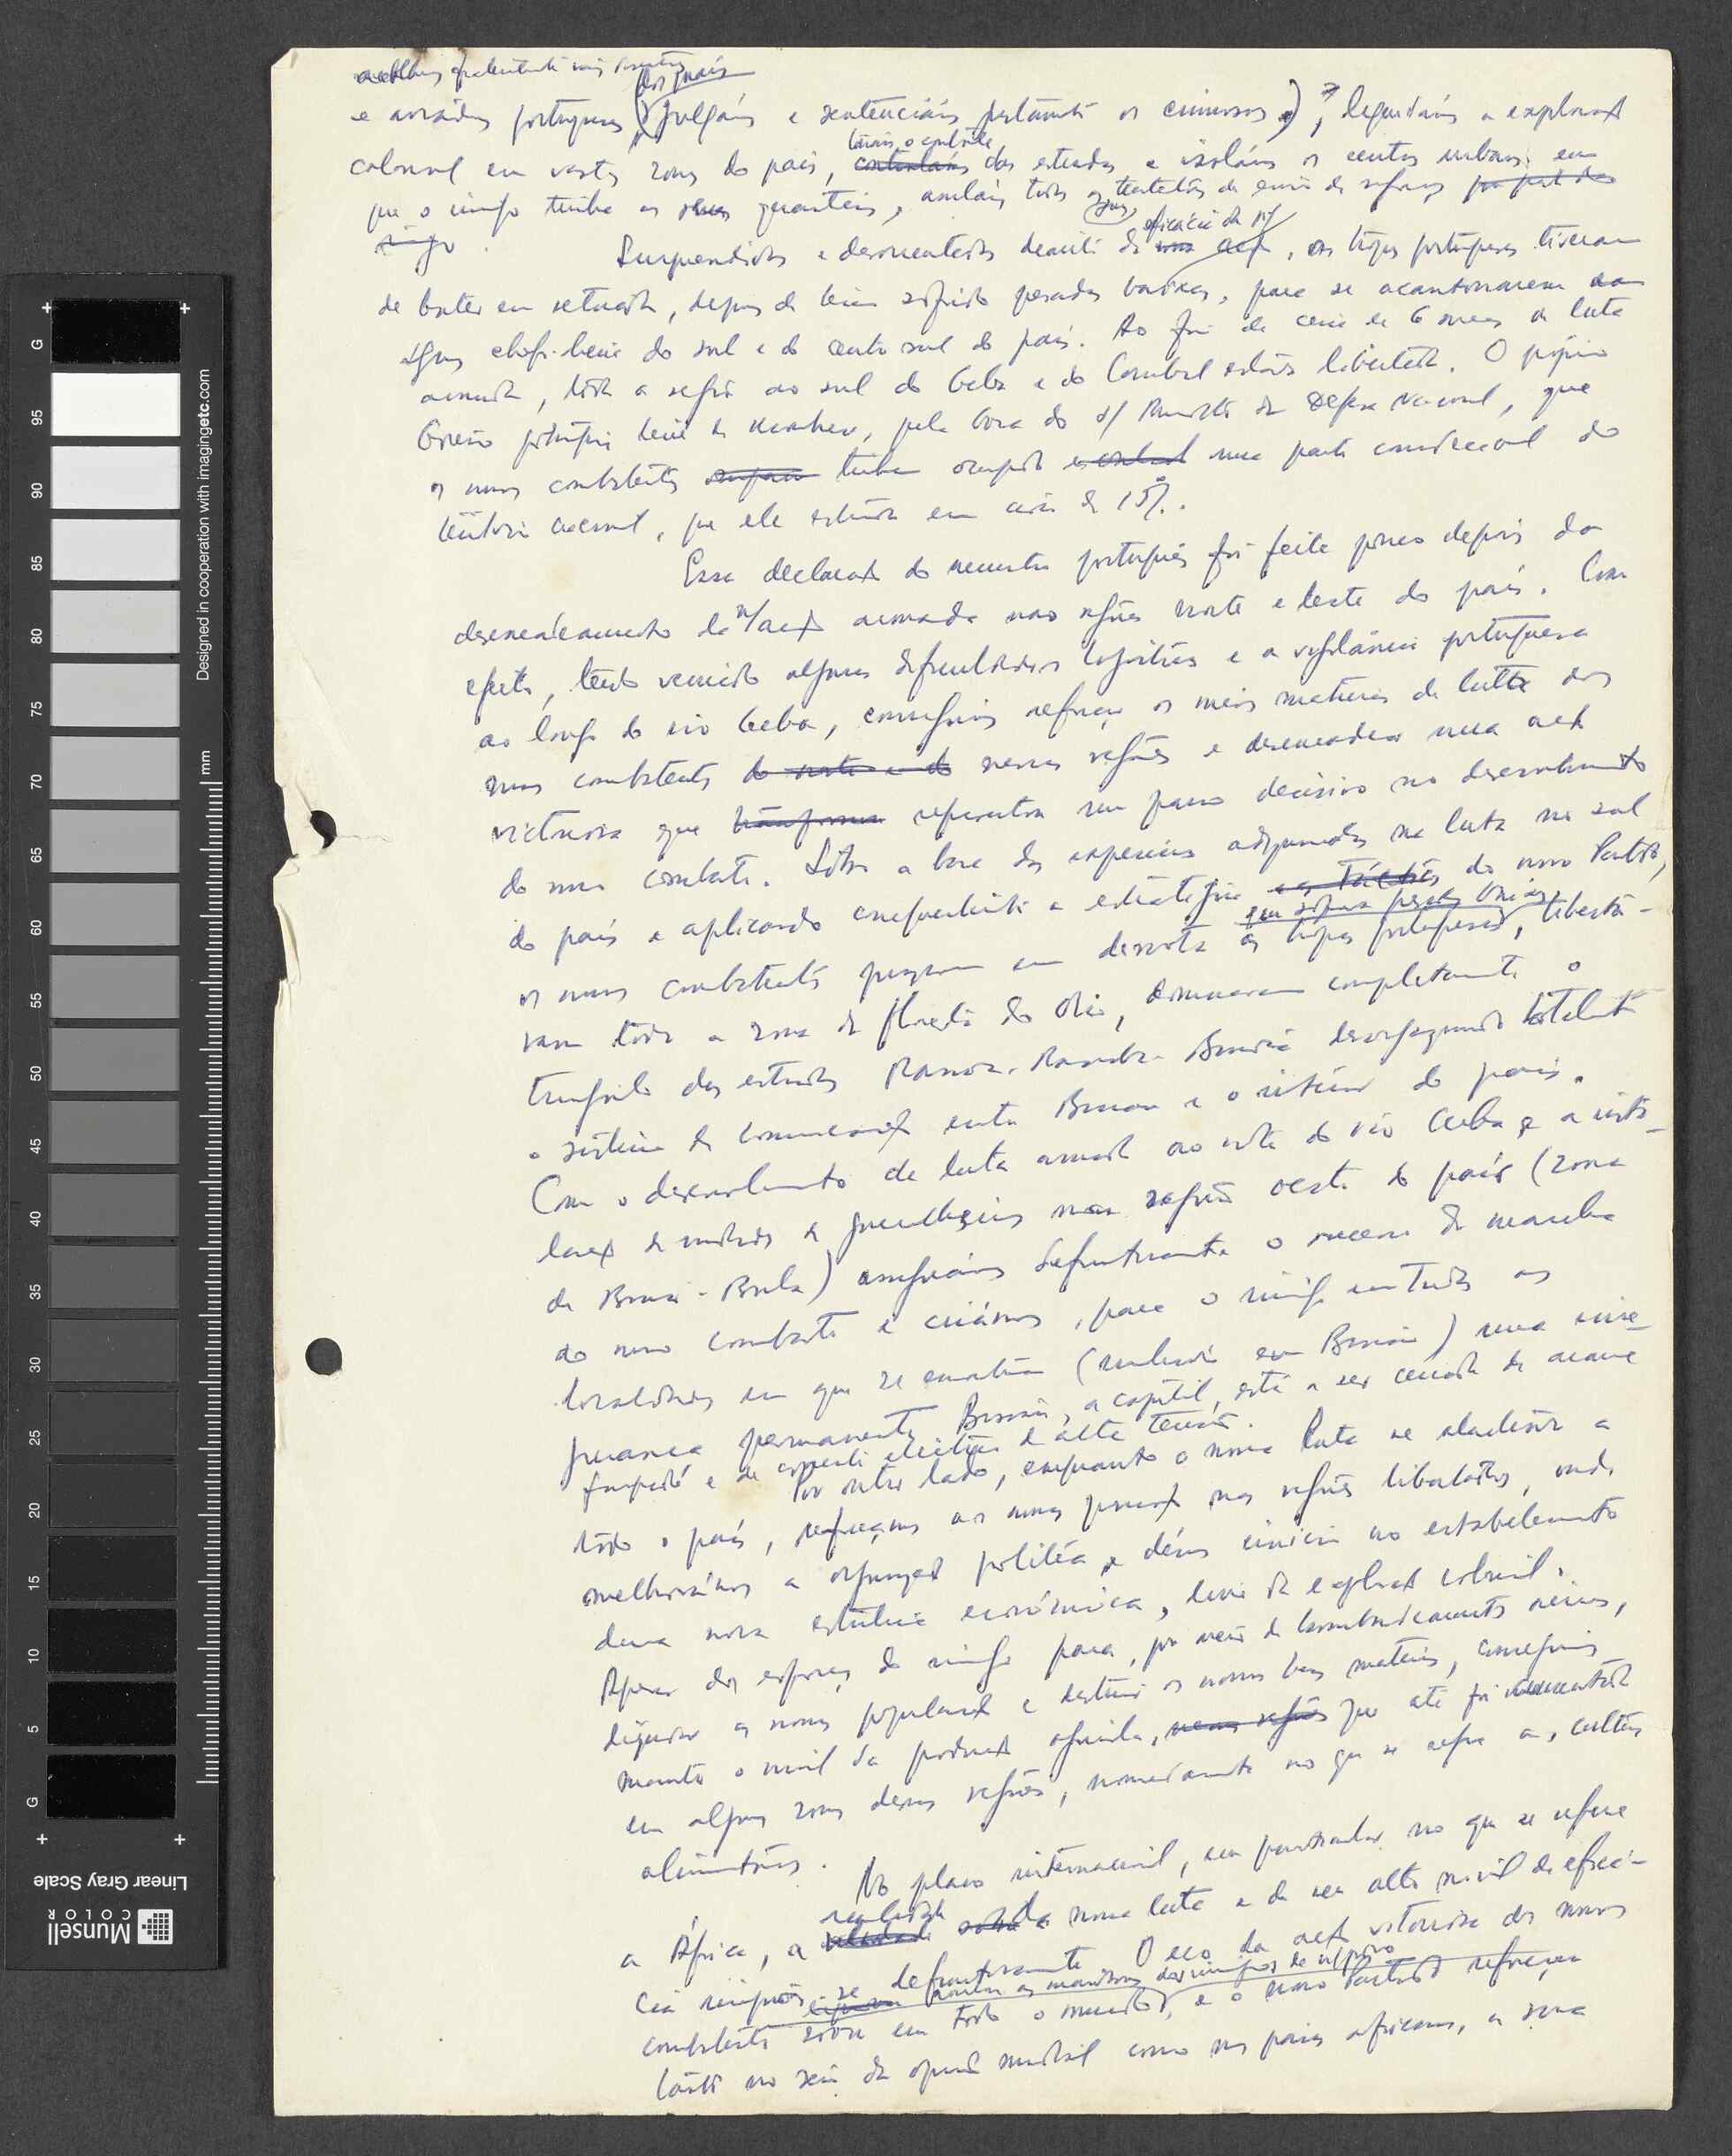 e aviões portugueses (julgámos e sentenciámos os criminosos), liquidámos a exploração
colonial em vastas zonas do país, das estradas e isolámos os centros urbanos em
que o inimigo tinha os seus quarteis, anulámos todas as tentativas de envio de reforços
inimigo.
Surpreendidos e desorientados deante da eficácia da n/ acção, as tropas portuguesas tiveram
de bater em retirada, depois de terem sofrido pesadas baixas, para se acantonarem em
algumas do sul e do centro sul do país. Ao fim de cerca de 6 meses de luta
armada, toda a região ao sul do Geba e do Corubal estava libertada. O próprio
Governo português teve de reconhecer, pela boca do s/ Ministro da Defesa Nacional, que
os nossos combatentes tinham ocupado uma parte considerável do
território nacional, que ele estimou em cerca de 15%.
Essa declaração do ministro português foi feita pouco depois do
desencadeamento da n/ acção armada nas regiões norte e leste do país. Com
efeito, tendo vencido algumas dificuldades logísticas e a vigilância portuguesa
ao longo do rio Geba, conseguimos reforçar os meios materiais de luta dos
nossos combatentes do norte e do nessas regiões e desencadear uma acção
victoriosa que representou um passo decisivo no desenvolvimento
do nosso combate. Sobre a base das experiências adquiridas na luta no sul
do país e aplicando a estratégia e as tácticas do nosso Partido,
os nossos combatentes puseram em derrota as tropas portuguesas, liberta-
ram toda a zona de floresta do Oio, dominaram completamente o
triângulo das estradas Mansoa-Mansabá-Bissorã desorganizando totalmente
o sistema de comunicação entre Bissau e o interior do país.
Com o desenvolvimento da luta armada ao norte do rio Geba e a insta-
lação de unidades de guerrilheiros na região oeste do país (zona
de Bissau-Bula) assegurámos definitivamente o sucesso da marcha
do nosso combate e criámos, para o inimigo em todas as
localidades em que se encontra (inclusivé em Bissau) uma inse-
gurança permanente. Bissau, a capital, está a ser cercada de arame
farpado e de corrente eléctrica de alta tensão.
Por outro lado, enquanto a nossa luta se alastrou a
todo o país, reforçámos as nossas posições nas regiões libertadas, onde
melhorámos a organização política e demos início ao estabelecimento
duma nova estrutura económica, livre da exploração colonial.
Apesar dos esforços do inimigo para, por meio de bombardeamentos aéreos,
liquidar as nossas populações e destruir os nossos bens materiais, conseguimos
manter o nível da produção agrícola, nessas regiões que até foi incrementada
em algumas zonas dessas regiões, nomeadamente no que se refere às culturas
alimentares.
No plano internacional, em particular no que se refere
a África, a realidade da nossa luta e do seu alto nível de eficá-
cia impôs-se definitivamente. O eco da acção vitoriosa dos nossos
combatentes soou em todo o mundo, e o nosso Partido reforçou
tanto no seio da opinião mundial como nos países africanos, a sua
Designed in cooperation with imagingetc.com
mm
G 95 90 85 80 75 70 65 60 55 50 45 40 35 30 25 20 15 10 5 G
Linear Gray Scale
Munsell
COLOR